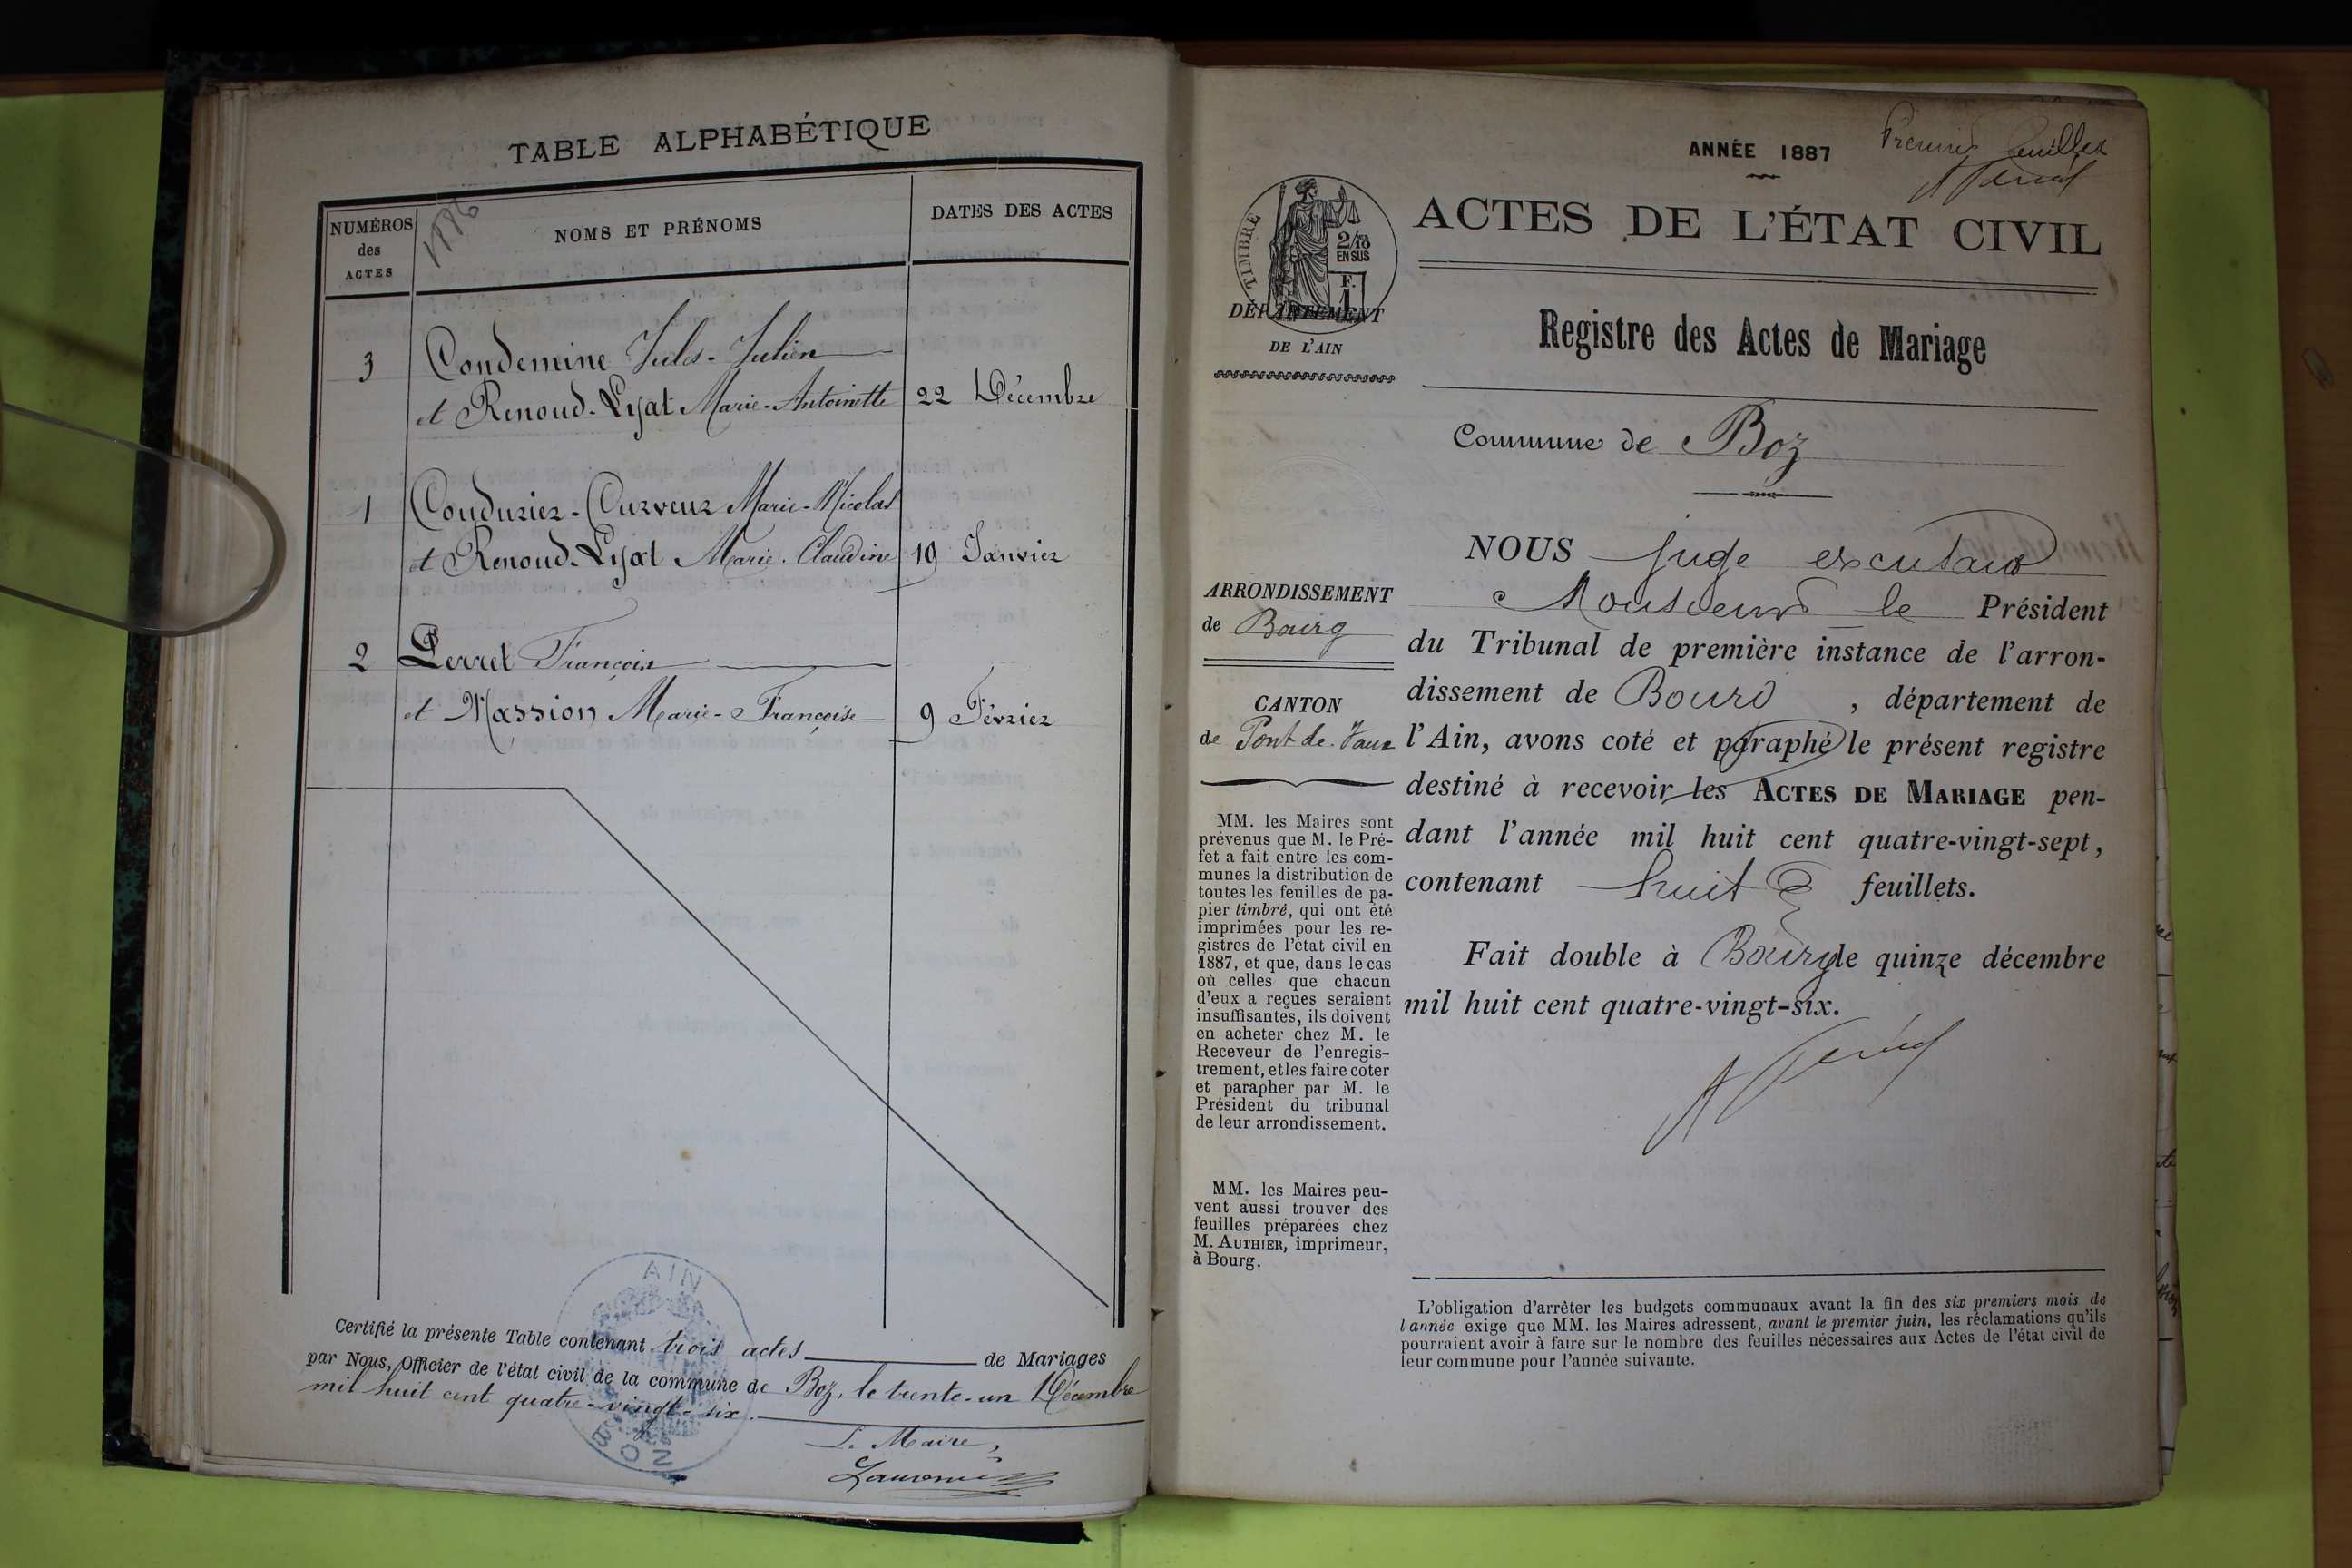 TABLE ALPHABÉTIQUE
NUMÉROS
des
ACTES
1886
NOMS ET PRÉNOMS
DATES DES ACTES
3 Condemine Jules-Julien
et Renoud-Lyat Marie-Antoinette 22 Décembre
1 Couduriez-Curveur Marie-Nicolas
et Renoud-Lyat Marie-Claudine 19 Janvier
2 Perret François
et Massion Marie-Françoise 9 Février
Certifié la présente Table contenant trois actes de Mariages
par Nous, Officier de l'état civil de la commune de Boz, le trente-un Décembre
mil huit cent quatre-vingt-six.
AIN
BOZ
Le Maire,
ANNÉE 1887
Premier feuillet
TIMBRE
2/10
EN SUS
F.
1
DÉPARTEMENT
DE L'AIN
ACTES DE L'ÉTAT CIVIL
Registre des Actes de Mariage
Commune de Boz
ARRONDISSEMENT
de Bourg
CANTON
de Pont-de-Vaux
MM. les Maires sont
prévenus que M. le Pré-
fet a fait entre les com-
munes la distribution de
toutes les feuilles de pa-
pier timbré, qui ont été
imprimées pour les re-
gistres de l'état civil en
1887, et que, dans le cas
où celles que chacun
d'eux a reçues seraient
insuffisantes, ils doivent
en acheter chez M. le
Receveur de l'enregis-
trement, et les faire coter
et parapher par M. le
Président du tribunal
de leur arrondissement.
MM. les Maires peu-
vent aussi trouver des
feuilles préparées chez
M. AUTHIER, imprimeur,
à Bourg.
NOUS Juge
Monsieur le Président
du Tribunal de première instance de l'arron-
dissement de Bourg, département de
l'Ain, avons coté et paraphé le présent registre
destiné à recevoir les ACTES DE MARIAGE pen-
dant l'année mil huit cent quatre-vingt-sept,
contenant huit feuillets.
Fait double à Bourg le quinze décembre
mil huit cent quatre-vingt-six.
L'obligation d'arrêter les budgets communaux avant la fin des six premiers mois de
l'année exige que MM. les Maires adressent, avant le premier juin, les réclamations qu'ils
pourraient avoir à faire sur le nombre des feuilles nécessaires aux Actes de l'état civil de
leur commune pour l'année suivante.